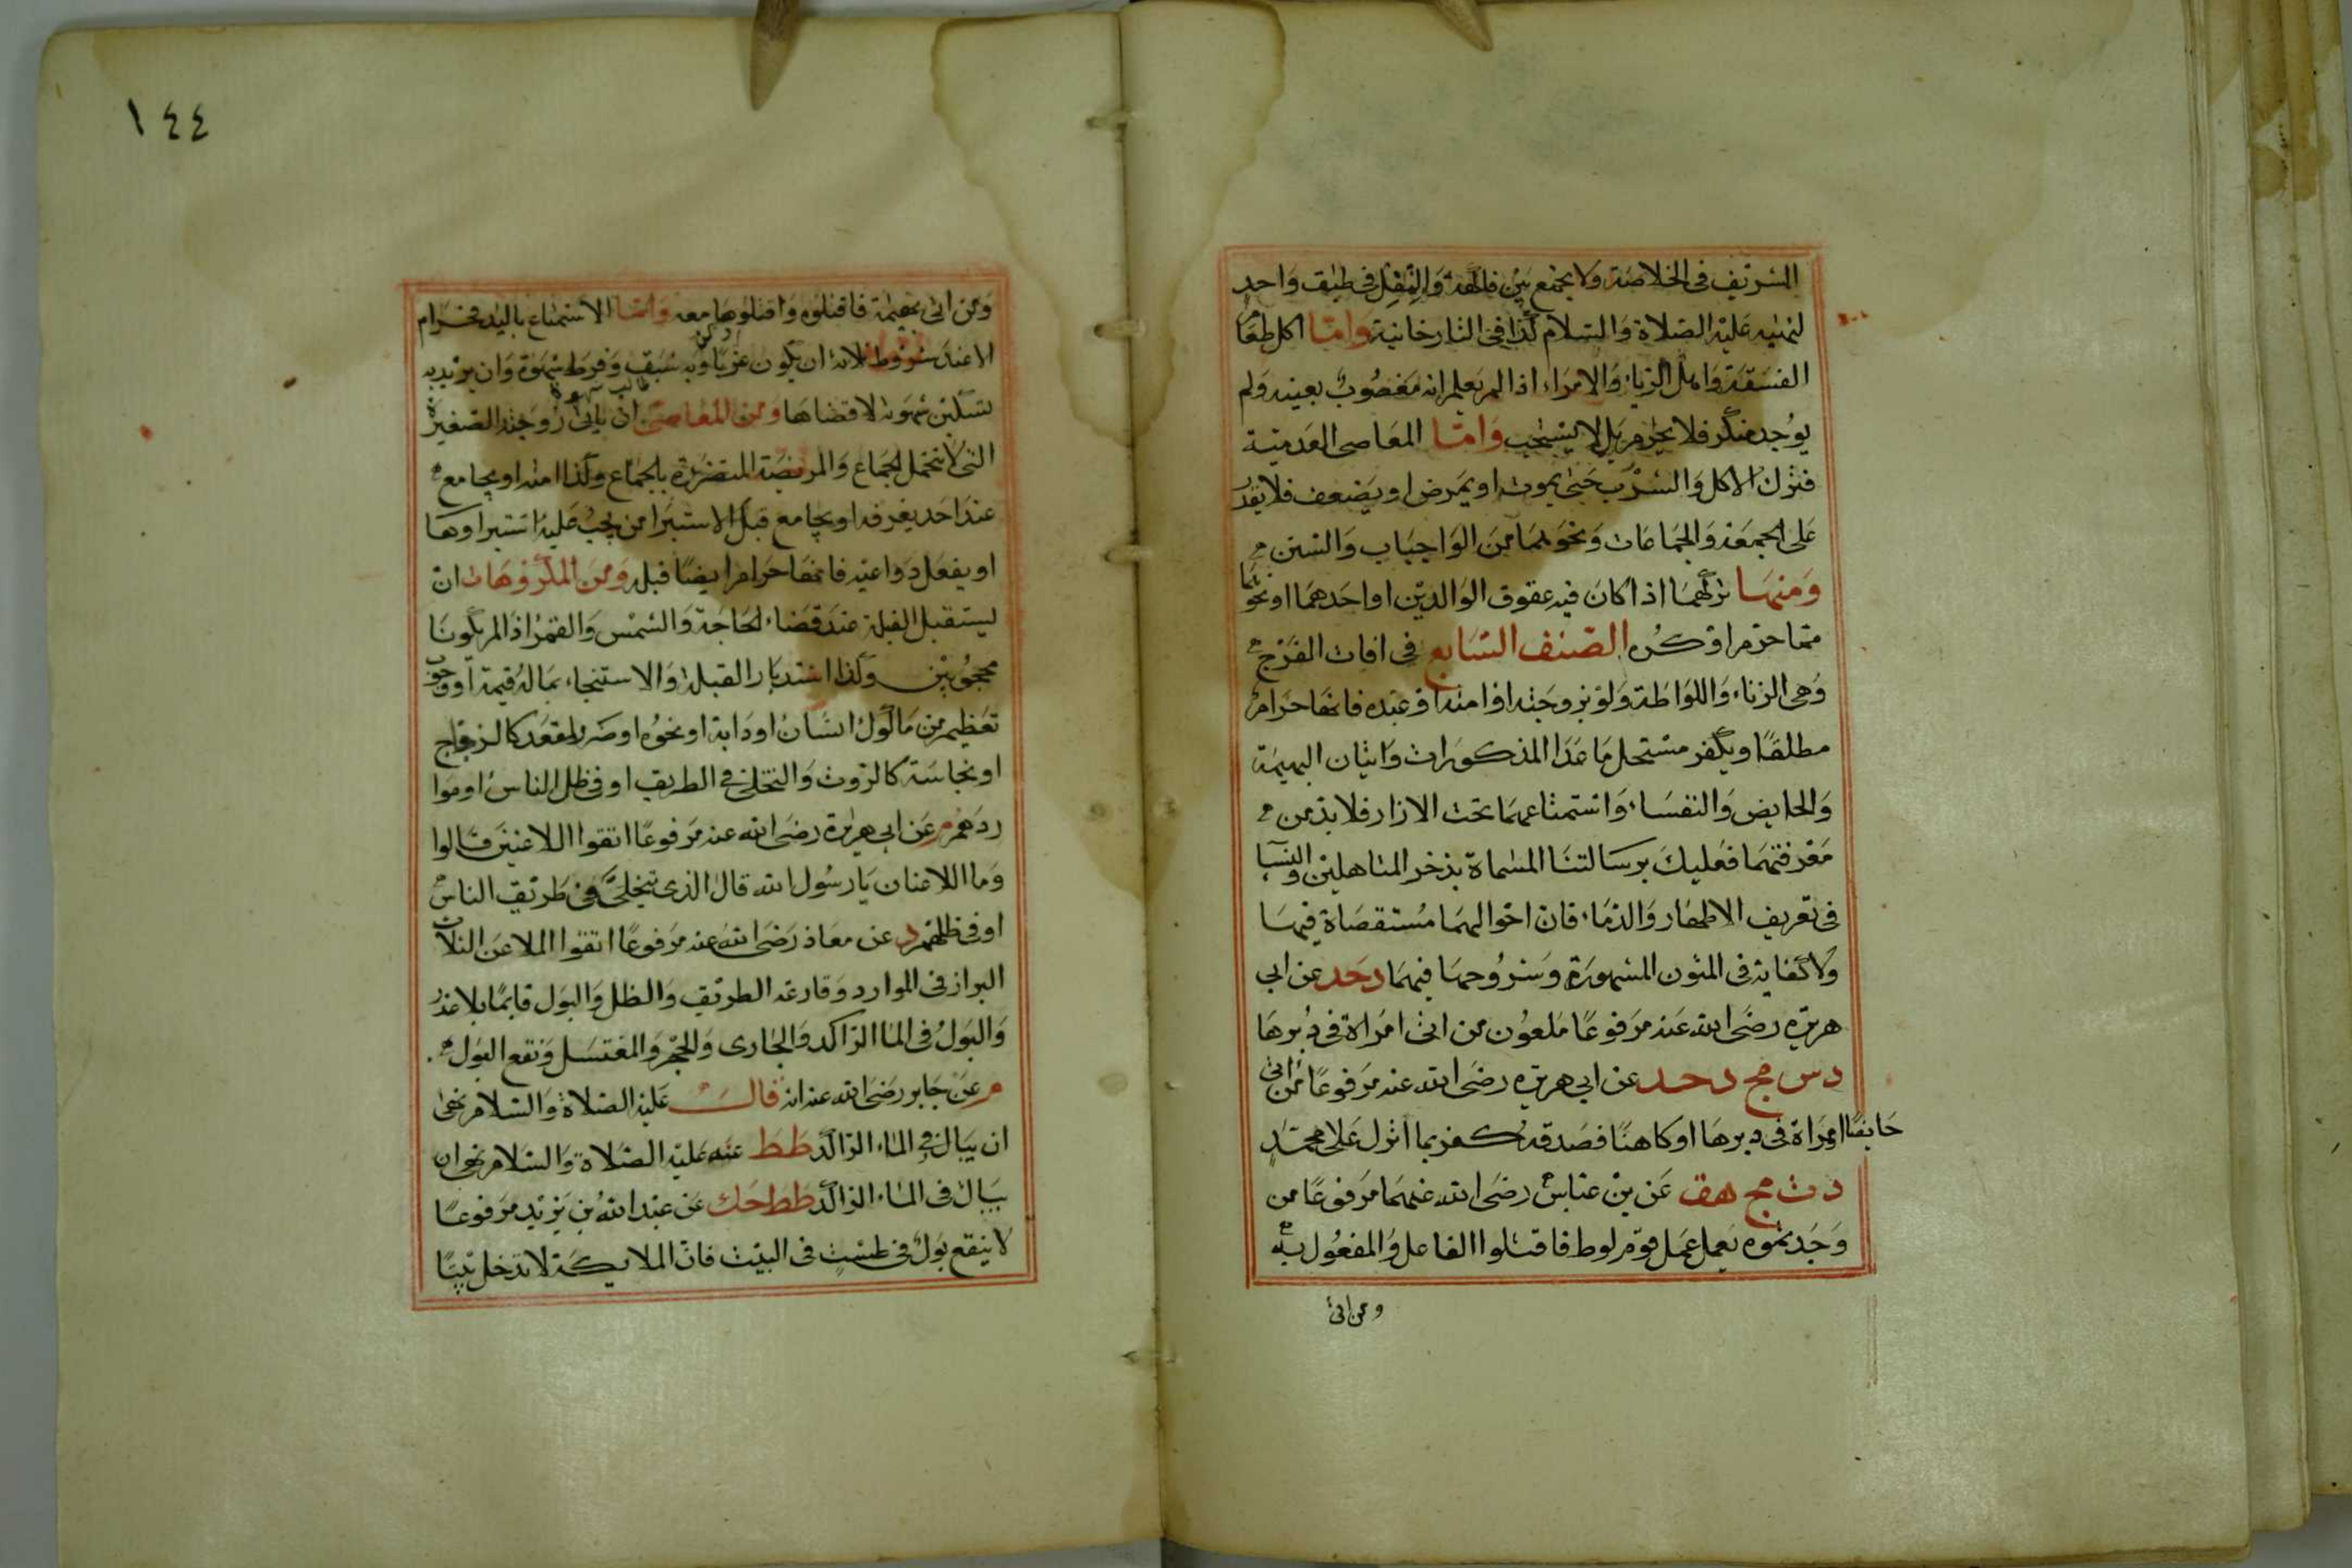 الشريف في الخلاصة ولا يجمع بين فاكهة والثفل في طبق واحد
لنهيه عليه الصلاة والسلام كذا في التتارخانية وامّا اكل طعام
الفسقة واهل الرياء والامراء اذا لم يعلم انه مغصوب بعينه ولم
يوجد منكر فلا يحرم بل لا يستحب وامّا المعاصي العدمية
فترك الاكل والشرب حتى يموت او يمرض او يضعف فلا يقدر
على الجمعة والجماعات ونحوهما من الواجبات والسنن
ومنها تركهما اذا كان فيه عقوق الوالدين او احدهما او نحوهما
مما حرم او كره الصنف السابع في افات الفرج
وهي الزناء واللواطة ولو بزوجته او امته او عبده فانها حرام
مطلقا ويكفر مستحل ما عدا المذكورات واتيان البهيمة
والحايض والنفساء واستمتاعهما تحت الازار فلا بد من
معرفتهما فعليك برسالتنا المسماة بذخر المتاهلين والنساء
في تعريف الاطهار والدماء فان احوالهما مستقصاة فيها
ولا كفاية في المتون المشهورة وشروحها فيهما د حد عن ابي
هريرة رضى الله عنه مرفوعا ملعون من اتى امراة في دبرها
د س مج د حد عن ابي هريرة رضى الله عنه مرفوعا من اتى
حايضا او امراة في دبرها او كاهنا فصدقه كفر بما انزل على محمد
د ت مج هق عن بن عباس رضى الله عنهما مرفوعا من
وجدتموه يعمل عمل قوم لوط فاقتلوا الفاعل والمفعول به
ومن اتى
١٤٤
ومن اتى بهيمة فاقتلوه واقتلوها معه وامّا الاستمناع باليد فحرام
الا عند شروط ثلاثة ان يكون عزبا وبه شبق وفرط شهوة وان يريد به
تسكين شهوته لا قضاها ومن المعاصي ان ياتي زوجته الصغيرة
التي لا تحتمل الجماع والمريضة المتضررة بالجماع وكذا امته او يجامع
عند احد يعرفه او يجامع قبل الاستبرا من يجب عليه استبراوها
او يفعل دواعيه فانها حرام ايضا قبله ومن المكروهات ان
يستقبل القبلة عند قضاء الحاجة والشمس والقمر اذا لم يكونا
محجوبين وكذا استدبار القبلة والاستنجاء بماله قيمة او وجوب
تعظيم من ماكول انسان او دابة او نحوه او ضر للمقعد كالزجاج
او نجاسة كالروث والتخلي في الطريق او في ظل الناس او موا
ردهم م عن ابي هريرة رضى الله عنه مرفوعا اتقوا اللاعنين قالوا
وما اللاعنان يارسول الله قال الذي يتخلى في طريق الناس
او في ظلهم د عن معاذ رضى الله عنه مرفوعا اتقوا الملاعن الثلاث
البراز في الموارد وقارعة الطريق والظل والبول قايما بلا عذر
والبول في الما الراكد والجارى والجحر والمغتسل ونقع البول
م عن جابر رضى الله عنه انه قال عليه الصلاة والسلام نهى
ان يبال في الماء الراكد طط عنه عليه الصلاة والسلام نهى ان
يبال في الماء الراكد طط حك عن عبد الله بن يزيد مرفوعا
لا ينقع بول في طست في البيت فان الملايكة لا تدخل بيتا